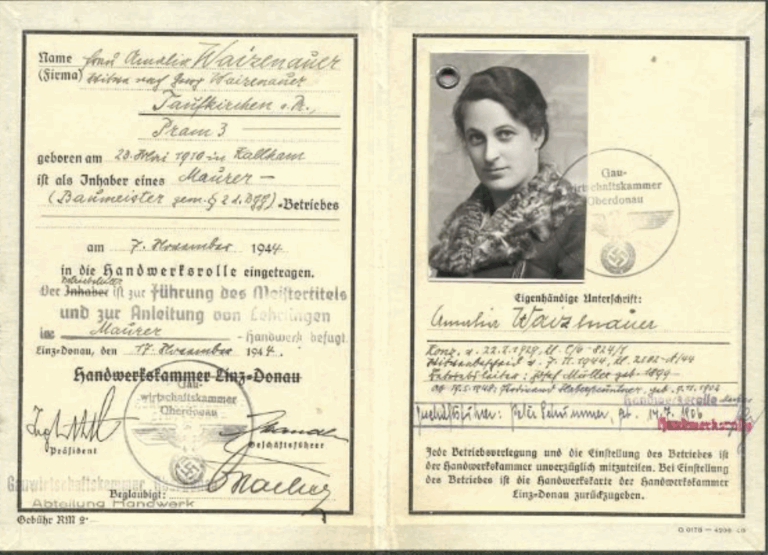 Name Frau Amalia Waizenauer
(Firma) Witwe nach Georg Waizenauer
Taufkirchen a. Pr.,
Pram 3
geboren am 23. Mai 1910 in Kallham
ist als Inhaber eines Maurer-
(Baumeister gem. § 2 d. Dgg) -Betriebes
am 7. November 1944
in die Handwerksrolle eingetragen.
Betriebsleiter
Der Inhaber ist zur Führung des Meistertitels
und zur Anleitung von Lehrlingen
im Maurer - Handwerk befugt.
Linz-Donau, den 17. November 1944.
Handwerkskammer Linz-Donau
Gau-
wirtschaftskammer
Oberdonau
Präsident
Geschäftsführer
Gauwirtschaftskammer Oberdonau
Beglaubigt:
Abteilung Handwerk
Gebühr RM 2·
Gau-
wirtschaftskammer
Oberdonau
Eigenhändige Unterschrift:
Amalia Waizenauer
Konz. v. 22.2.1929, Zl.
v. 7. 11. 1944, Zl. 2102
Betriebsleiter: Josef Müller geb. 1899
Handwerksrolle
Geschäftsführer: 14.7. 1906
Handwerksrolle
Jede Betriebsverlegung und die Einstellung des Betriebes ist
der Handwerkskammer unverzüglich mitzuteilen. Bei Einstellung
des Betriebes ist die Handwerkskarte der Handwerkskammer
Linz-Donau zurückzugeben.